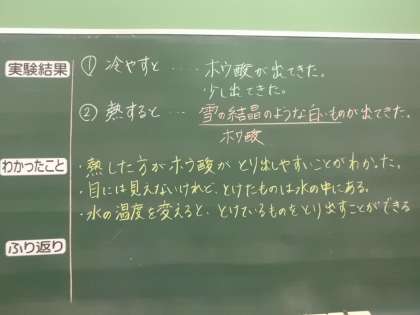 実験結果
① 冷やすと…… ホウ酸が出てきた。
少し出てきた。
② 熱すると…… 雪の結晶のような白いものが出てきた。
ホウ酸
わかったこと
・熱した方がホウ酸がとり出しやすいことがわかった。
・目には見えないけれど、とけたものは水の中にある。
・水の温度を変えると、とけているものをとり出すことができる
ふり返り